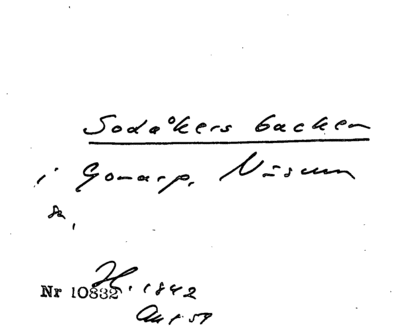 Sodåkers backen
i Gonarp, Näsum
Sk,
Nr 10832 H. 1842